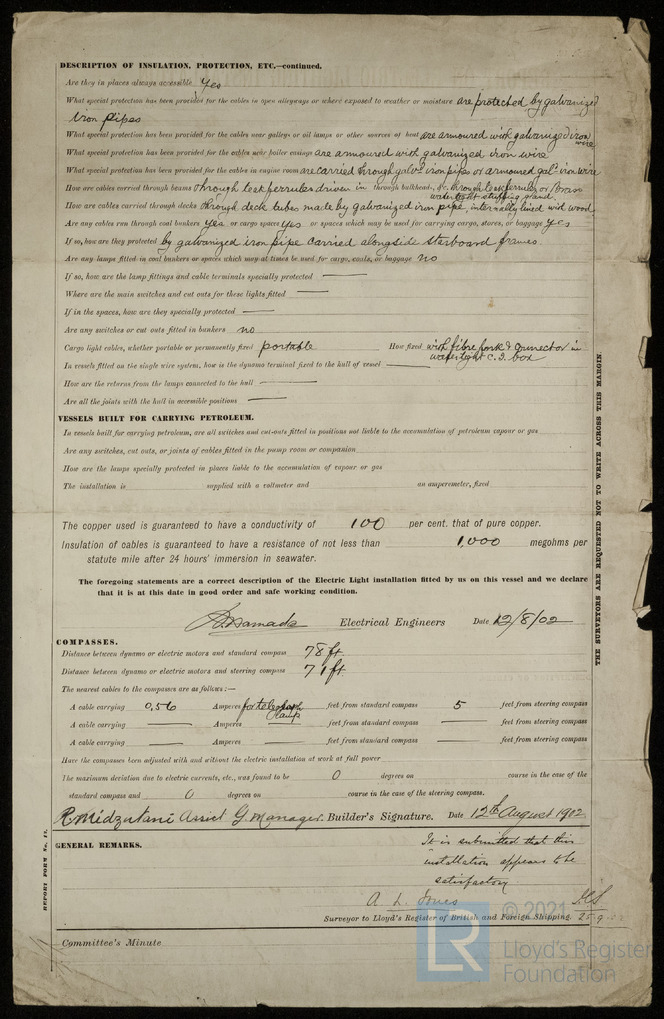 DESCRIPTION OF INSULATION, PROTECTION, ETC.—continued.
Are they in places always accessible Yes
What special protection has been provided for the cables in open alleyways or where exposed to weather or moisture are protected by galvanized
iron pipes
What special protection has been provided for the cables near galleys or oil lamps or other sources of heat are armoured with galvanized iron wire
What special protection has been provided for the cables near boiler casings are armoured with galvanized iron wire
What special protection has been provided for the cables in engine room are carried through galvd iron pipes or armoured gald iron wire
How are cables carried through beams through leek ferrules driven in through bulkheads, &c. through leek ferrules or brass watertight stuffing gland.
How are cables carried through decks through deck tubes made by galvanized iron pipe, internally lined with wood
Are any cables run through coal bunkers yes or cargo spaces yes or spaces which may be used for carrying cargo, stores, or baggage yes
If so, how are they protected by galvanized iron pipe carried alongside starboard frames.
Are any lamps fitted in coal bunkers or spaces which may at times be used for cargo, coals, or baggage no
If so, how are the lamp fittings and cable terminals specially protected —
Where are the main switches and cut outs for these lights fitted —
If in the spaces, how are they specially protected —
Are any switches or cut outs fitted in bunkers no
Cargo light cables, whether portable or permanently fixed portable How fixed with fibre fork & connector in watertight C.I. box
In vessels fitted on the single wire system, how is the dynamo terminal fixed to the hull of vessel —
How are the returns from the lamps connected to the hull —
Are all the joints with the hull in accessible positions —
VESSELS BUILT FOR CARRYING PETROLEUM.
In vessels built for carrying petroleum, are all switches and cut-outs fitted in positions not liable to the accumulation of petroleum vapour or gas
Are any switches, cut outs, or joints of cables fitted in the pump room or companion
How are the lamps specially protected in places liable to the accumulation of vapour or gas
The installation is supplied with a voltmeter and an amperemeter, fixed
The copper used is guaranteed to have a conductivity of 100 per cent. that of pure copper.
Insulation of cables is guaranteed to have a resistance of not less than 1,000 megohms per
statute mile after 24 hours' immersion in seawater.
The foregoing statements are a correct description of the Electric Light installation fitted by us on this vessel and we declare
that it is at this date in good order and safe working condition.
Hamada Electrical Engineers Date 12/8/02
COMPASSES.
Distance between dynamo or electric motors and standard compass 78 ft
Distance between dynamo or electric motors and steering compass 71 ft
The nearest cables to the compasses are as follows:—
A cable carrying 0,56 Amperes for telegraph lamp feet from standard compass 5 feet from steering compass
A cable carrying — Amperes — feet from standard compass — feet from steering compass
A cable carrying — Amperes — feet from standard compass — feet from steering compass
Have the compasses been adjusted with and without the electric installation at work at full power
The maximum deviation due to electric currents, etc., was found to be 0 degrees on course in the case of the
standard compass and 0 degrees on course in the case of the steering compass.
R. Midzutani Assist G. Manager. Builder's Signature. Date 12th August 1902
GENERAL REMARKS.
It is submitted that this
installation appears to be
satisfactory.
A. L. Jones
Surveyor to Lloyd's Register of British and Foreign Shipping. 25.9.02
Committee's Minute
REPORT FORM No. 17.
THE SURVEYORS ARE REQUESTED NOT TO WRITE ACROSS THIS MARGIN.
© 2021
LR
Lloyd's Register
Foundation